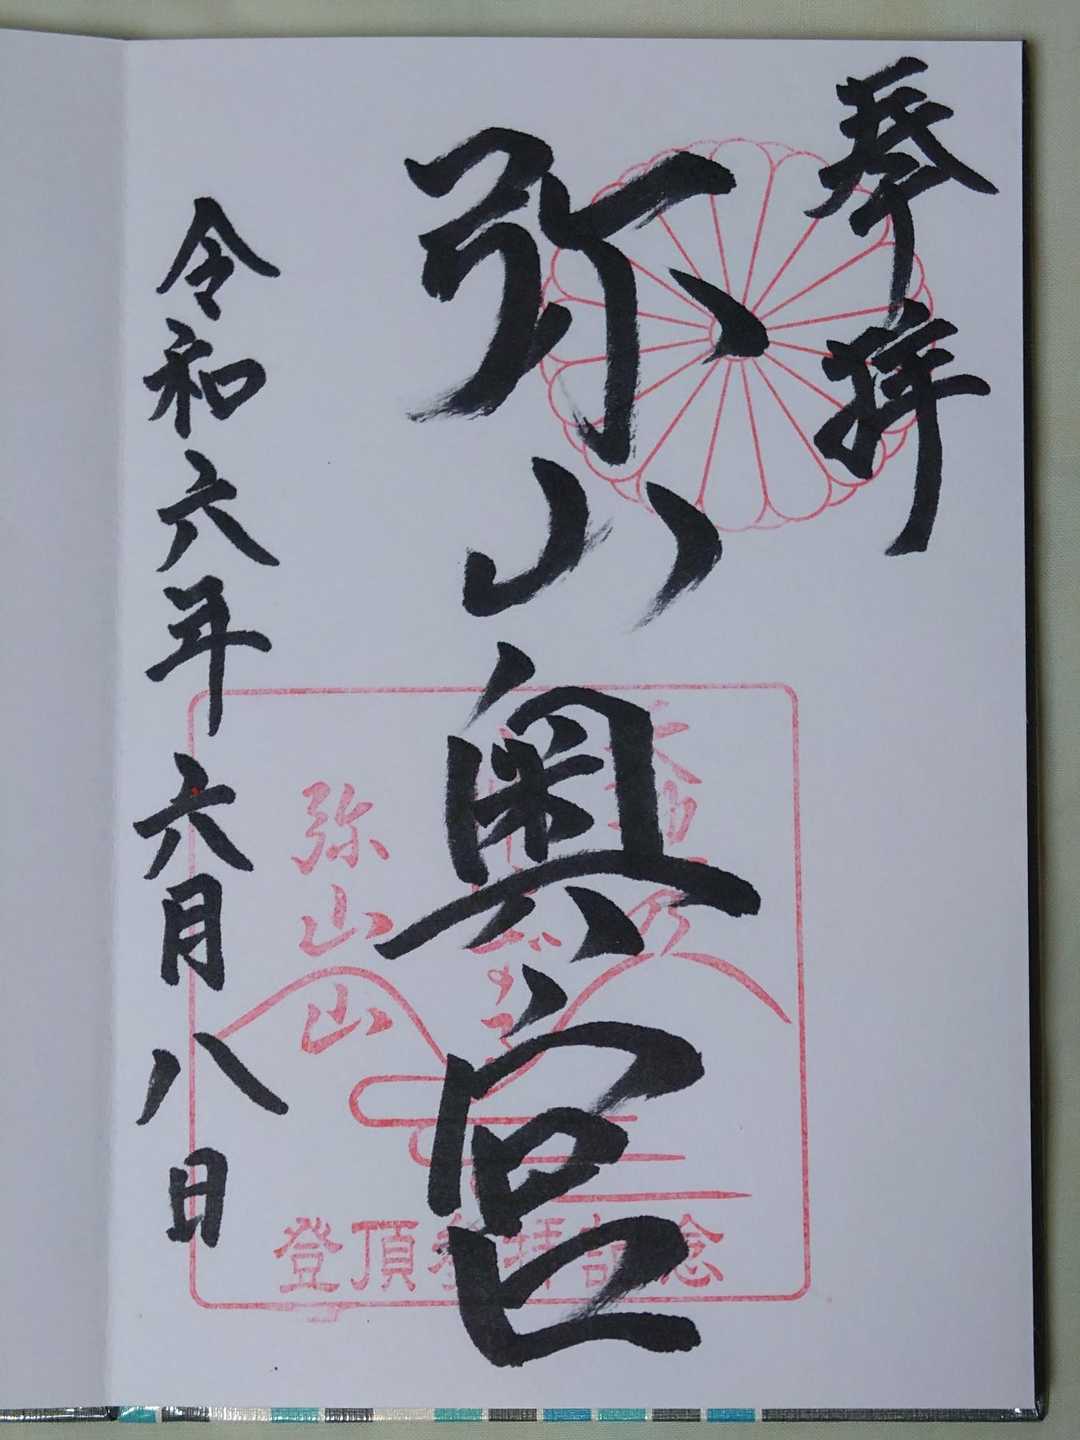 奉拝
弥山奥宮
令和六年六月八日
弥山山
登頂参拝記念